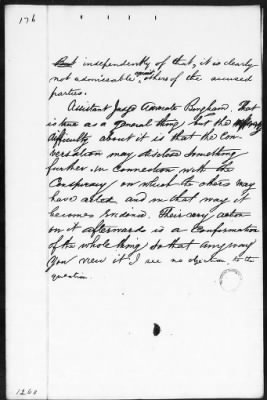 176
But independently of that, it is clearly
not admissable against others of the accused
parties.
Assistant Judge Advocate Bingham. That
is true as a general thing but the
difficulty about it is that the Con
versation may disclose something
further in Connection with the
Conspiracy on which the others may
have acted and in that way it
becomes Evidence. Their very action
on it afterwards is a Confirmation
of the whole thing so that any way
you view it I see no objection to the
question.
1260